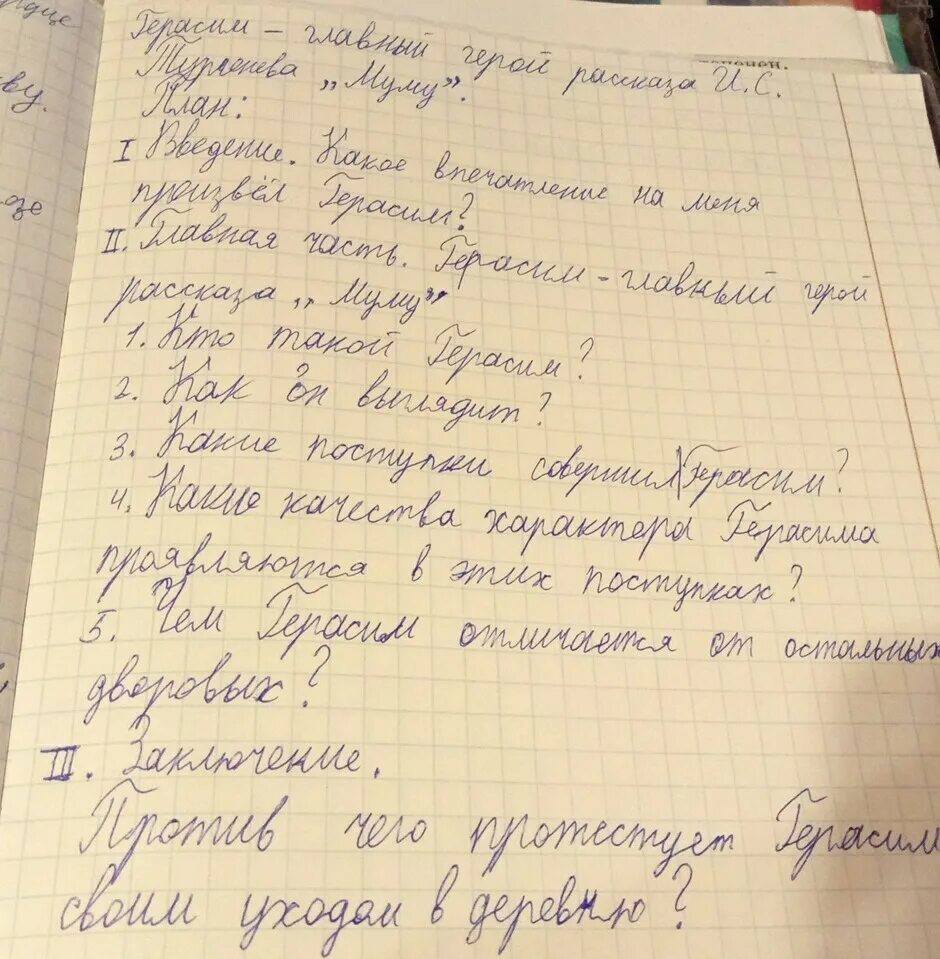 Герасим – главный герой рассказа И.С.
Тургенева „Муму".
План:
I Введение. Какое впечатление на меня
произвёл Герасим?
II. Главная часть. Герасим – главный герой
рассказа „Муму"
1. Кто такой Герасим?
2. Как он выглядит?
3. Какие поступки совершил Герасим?
4. Какие качества характера Герасима
проявляются в этих поступках?
5. Чем Герасим отличается от остальных
дворовых?
III. Заключение.
Против чего протестует Герасим
своим уходом в деревню?